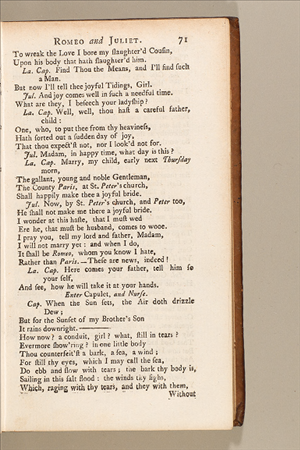 ROMEO and JULIET. 71
To wreak the Love I bore my ſlaughter'd Couſin,
Upon his body that hath ſlaughter'd him.
La. Cap. Find Thou the Means, and I'll find ſuch
a Man.
But now I'll tell thee joyful Tidings, Girl.
Jul. And joy comes well in ſuch a needful time.
What are they, I beſeech your ladyſhip?
La. Cap. Well, well, thou haſt a careful father,
child:
One, who, to put thee from thy heavineſs,
Hath ſorted out a ſudden day of joy,
That thou expect'ſt not, nor I look'd not for.
Jul. Madam, in happy time, what day is this?
La. Cap. Marry, my child, early next Thurſday
morn,
The gallant, young and noble Gentleman,
The County Paris, at St. Peter's church,
Shall happily make thee a joyful bride.
Jul. Now, by St. Peter's church, and Peter too,
He ſhall not make me there a joyful bride.
I wonder at this haſte, that I muſt wed
Ere he, that muſt be husband, comes to wooe.
I pray you, tell my lord and father, Madam,
I will not marry yet: and when I do,
It ſhall be Romeo, whom you know I hate,
Rather than Paris.—Theſe are news, indeed!
La. Cap. Here comes your father, tell him ſo
your ſelf,
And ſee, how he will take it at your hands.
Enter Capulet, and Nurſe.
Cap. When the Sun ſets, the Air doth drizzle
Dew;
But for the Sunſet of my Brother's Son
It rains downright.———
How now? a conduit, girl? what, ſtill in tears?
Evermore ſhow'ring? in one little body
Thou counterfeit'ſt a bark, a ſea, a wind;
For ſtill thy eyes, which I may call the ſea,
Do ebb and flow with tears; the bark thy body is,
Sailing in this ſalt flood: the winds thy ſighs,
Which, raging with thy tears, and they with them,
Without